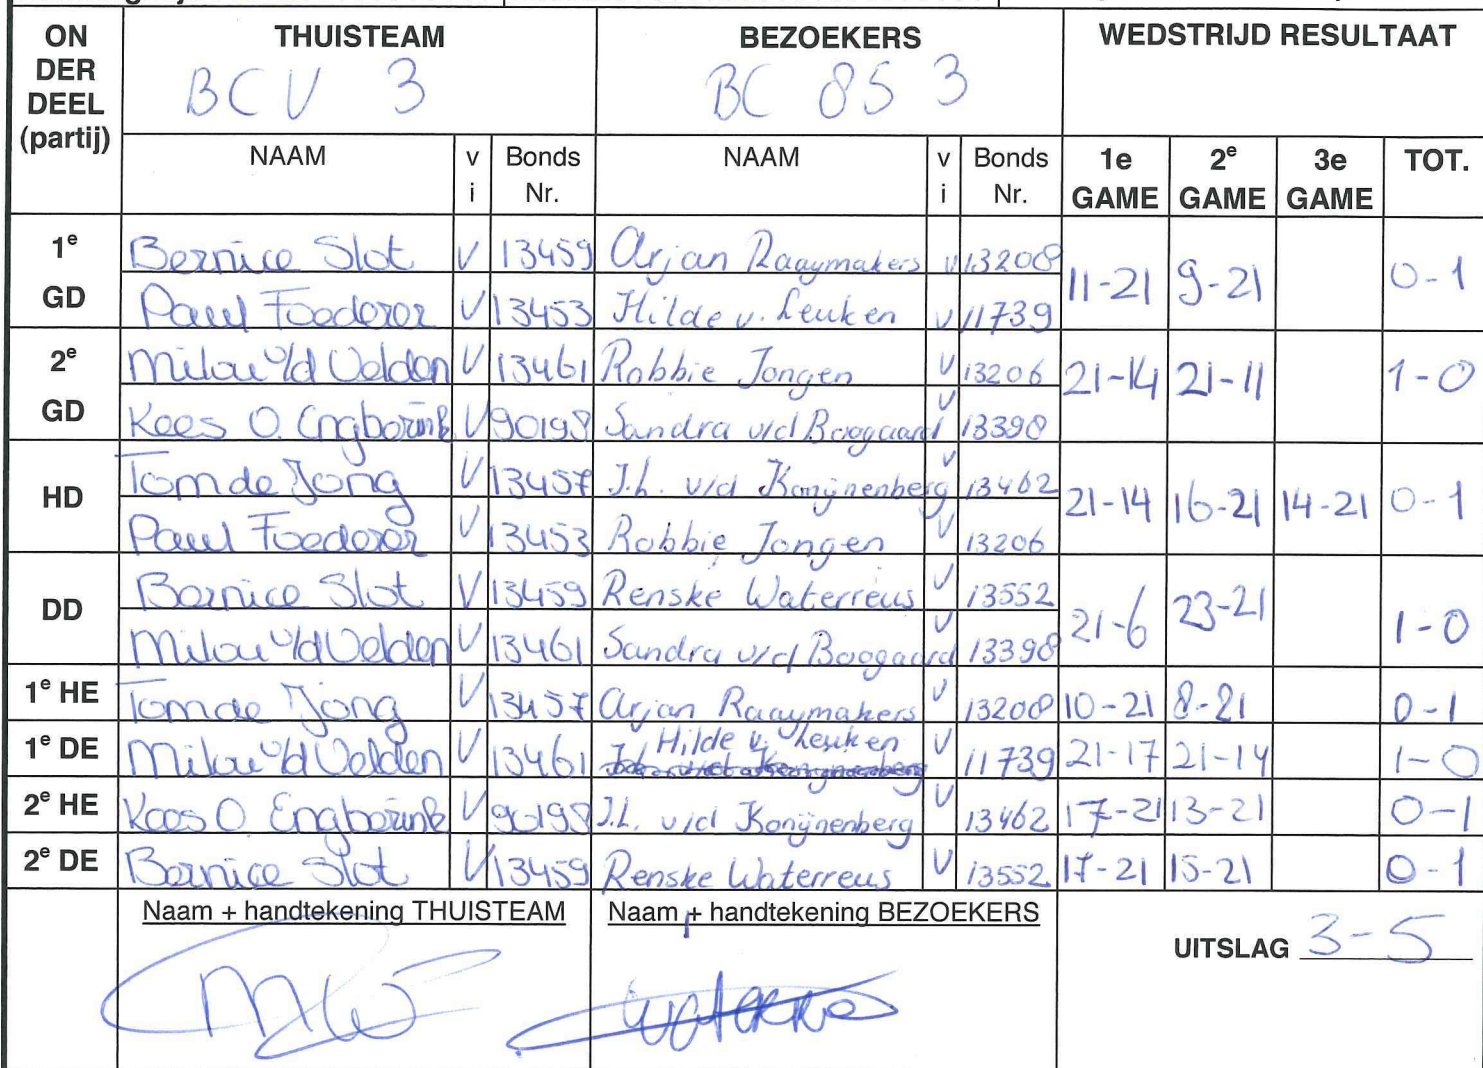 ON DER DEEL (partij) THUISTEAM BEZOEKERS WEDSTRIJD RESULTAAT
BCV 3 BC 85 3
NAAM vi Bonds Nr. NAAM vi Bonds Nr. 1e GAME 2e GAME 3e GAME TOT.
1e GD Bernice Slot V 13459 Arjan Raaymakers v 13208 11-21 9-21 0-1
Paul Foederer V 13453 Hilde v. Leuken v 11739
2e GD Milou v/d Velden V 13461 Robbie Jongen v 13206 21-14 21-11 1-0
Kees O. Engberink V 90198 Sandra v/d Boogaard v 13398
HD Tom de Jong V 13457 J.L. v/d Konijnenberg v 13462 21-14 16-21 14-21 0-1
Paul Foederer V 13453 Robbie Jongen v 13206
DD Bernice Slot V 13459 Renske Waterreus v 13552 21-6 23-21 1-0
Milou v/d Velden V 13461 Sandra v/d Boogaard v 13398
1e HE Tom de Jong V 13457 Arjan Raaymakers v 13208 10-21 8-21 0-1
1e DE Milou v/d Velden V 13461 Hilde v. Leuken v 11739 21-17 21-14 1-0
2e HE Kees O. Engberink V 90198 J.L. v/d Konijnenberg v 13462 17-21 13-21 0-1
2e DE Bernice Slot V 13459 Renske Waterreus V 13552 17-21 15-21 0-1
Naam + handtekening THUISTEAM Naam + handtekening BEZOEKERS
UITSLAG 3-5